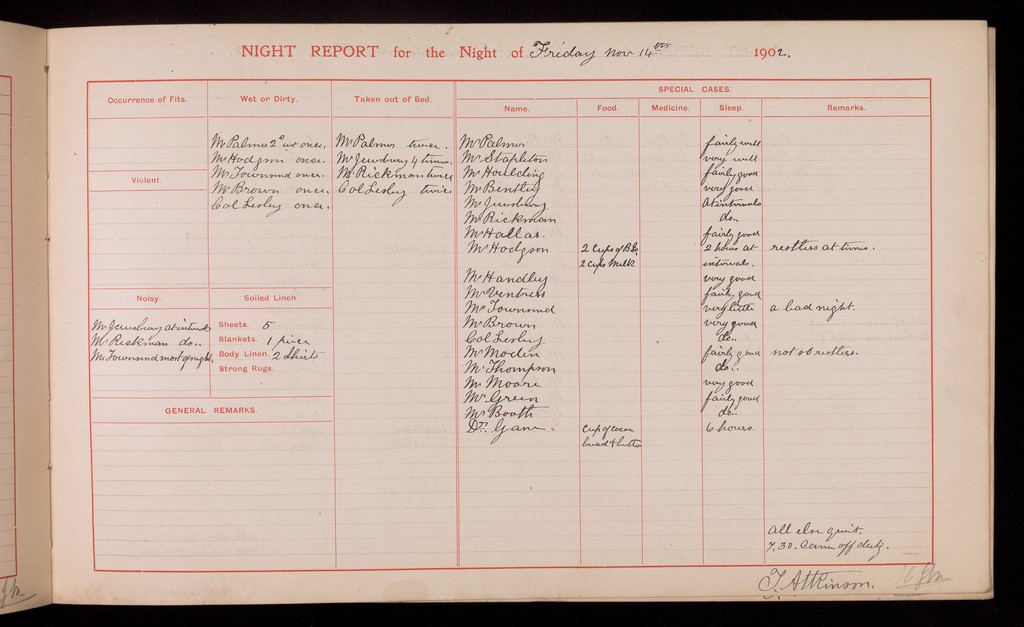 NIGHT REPORT for the Night of Friday Nov 14th 1902.
Occurrence of Fits.
Wet or Dirty.
Taken out of Bed.
SPECIAL CASES.
Name.
Food.
Medicine.
Sleep.
Remarks.
Mr Palmer once.
Mr Hodgson once.
Mr Townsend once.
Mr Brown once.
Col Lesley once.
Mr Palmer twice.
Mr Jewsbury 4 times.
Mr Rickman twice
Col Lesley twice
Violent.
Noisy.
Mr Jewsbury at intervals
Mr Rickman do..
Mr Townsend most of night.
Soiled Linen.
Sheets. 5
Blankets. 1 piece
Body Linen. 2 Shirts
Strong Rugs.
GENERAL REMARKS.
Mr Palmer fairly well
Mr Stapleton very well
Mr Houlding fairly good
Mr Bentley very good
Mr Jewsbury At intervals
Mr Rickman do..
Mr Hallas. fairly good
Mr Hodgson 2 Cups of 2 hours at restless at times.
2 cups milk intervals.
Mr Handley very good
Mr Ventress fairly good
Mr Townsend very little a bad night.
Mr Brown very good
Col Lesley do..
Mr Moden fairly good not so restless.
Mr Thompson do..
Mr Moore very good
Mr Green fairly good
Mr Booth do..
Dr. Game. Cup of cocoa 6 hours.
bread & butter
All else quiet.
7.30. Came off duty.
T. Atkinson.